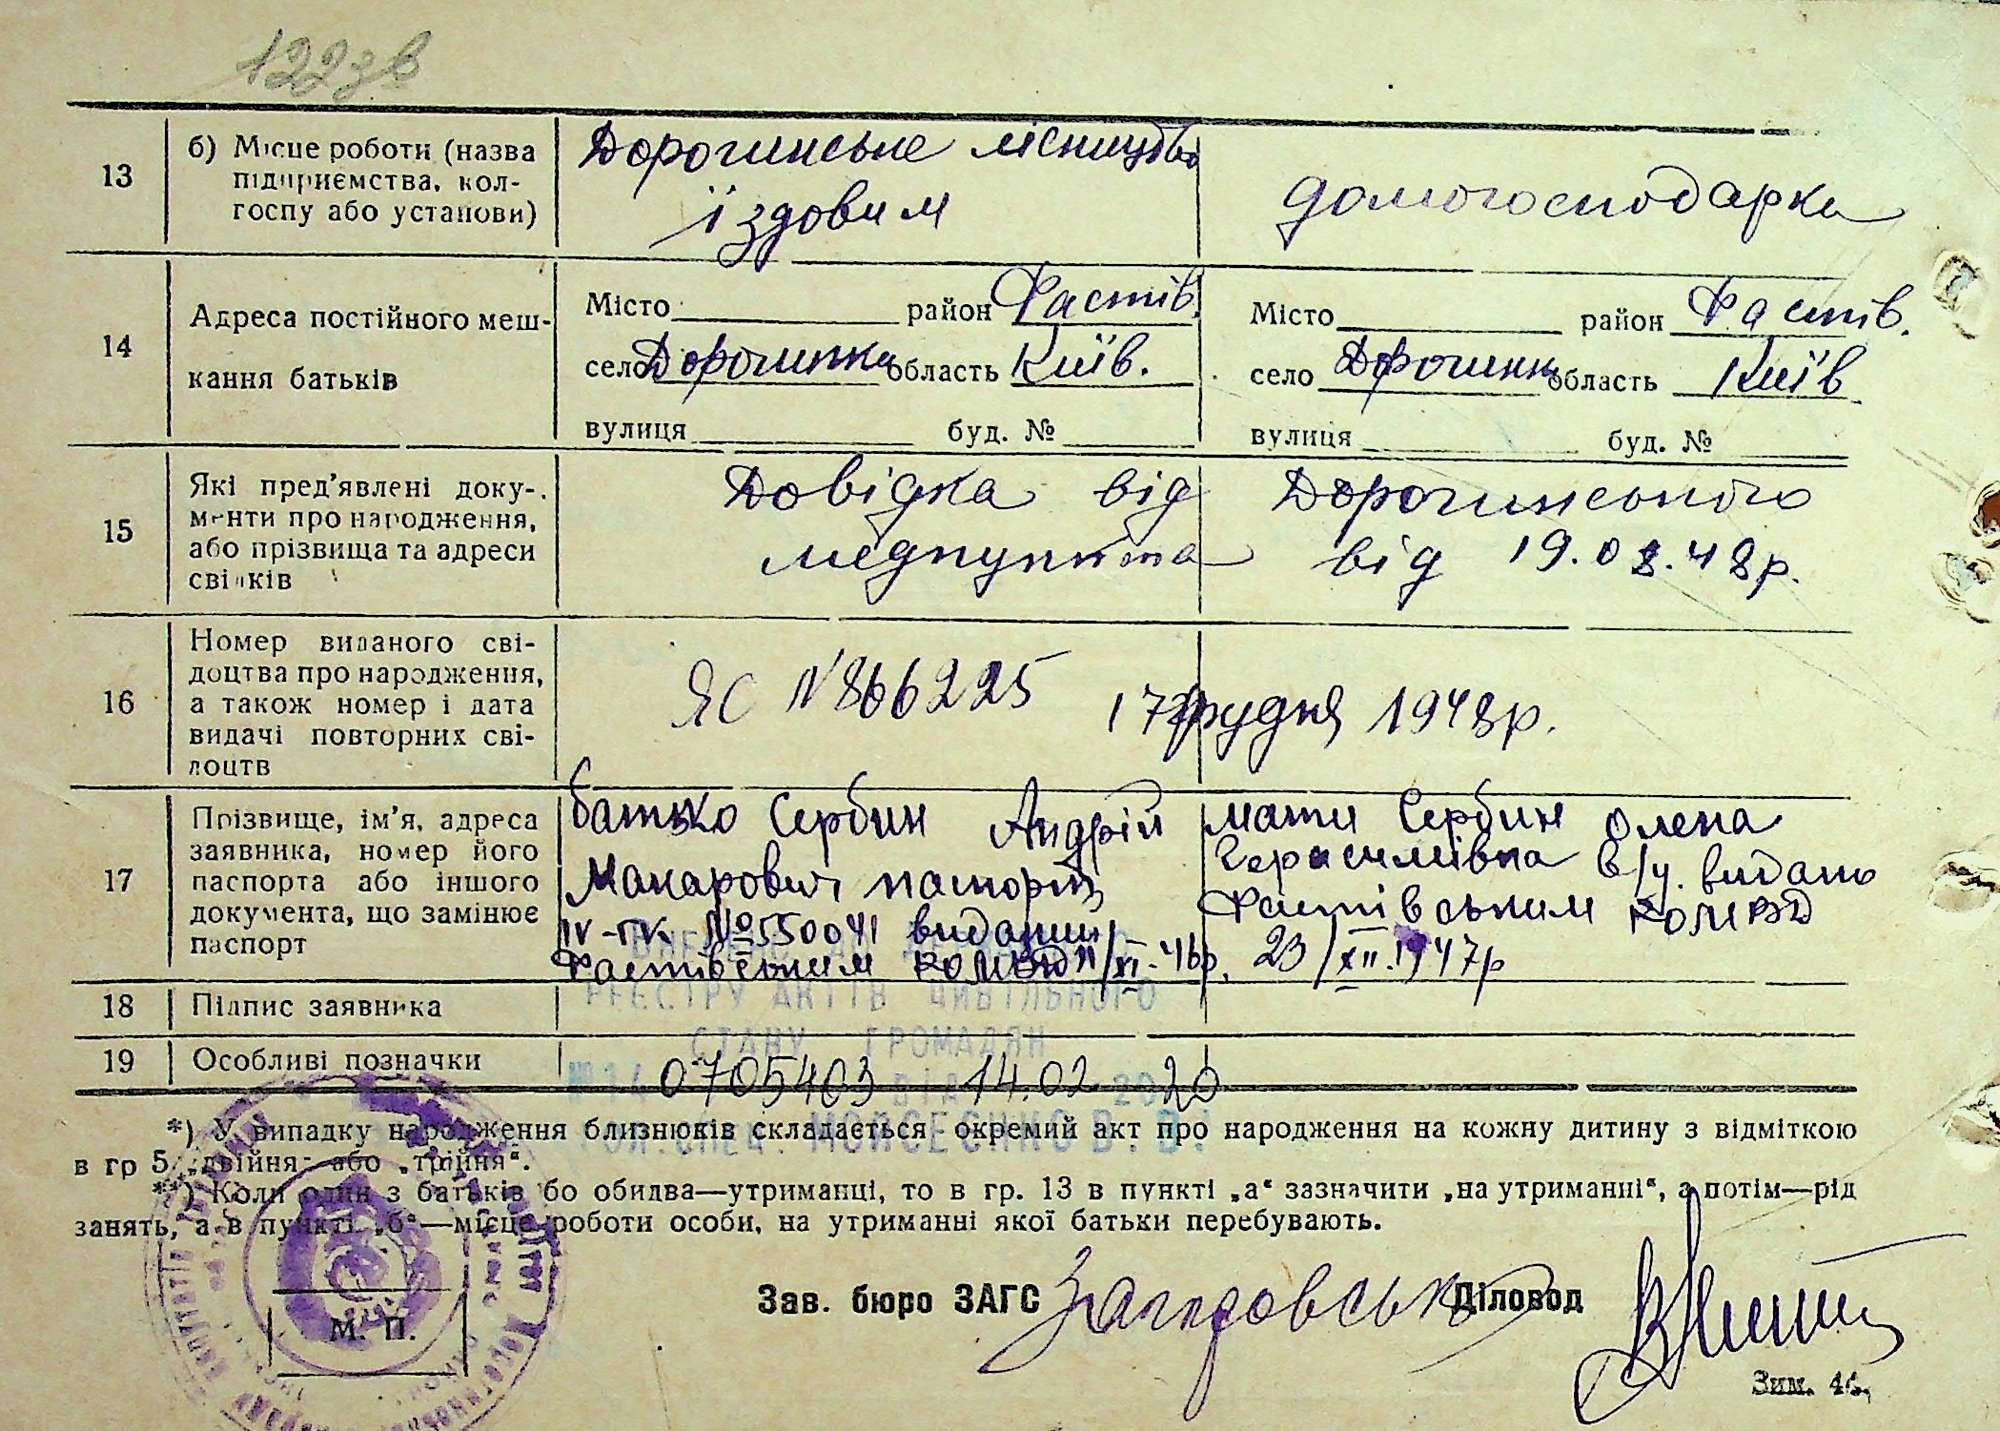 122зв
13 б) Місце роботи (назва підприємства, кол-госпу або установи) Дорогинське лісництво їздовим домогосподарка
14 Адреса постійного меш-кання батьків
Місто район Фастів. Місто район Фастів.
село Дорогинка область Київ. село Дорогинка область Київ
вулиця буд. № вулиця буд. №
15 Які пред'явлені доку-менти про народження, або прізвища та адреси свідків
Довідка від Дорогинського
медпункта від 19.08.48р.
16 Номер виданого сві-доцтва про народження, а також номер і дата видачі повторних сві-доцтв
ЯС №866225 17 грудня 1948р.
17 Прізвище, ім'я, адреса заявника, номер його паспорта або іншого документа, що замінює паспорт
батько Сербин Андрій
Макарович паспорт
IV-ГК №550041 виданий
Фастівським
мати Сербин Олена
Герасимівна в/у. видано
Фастівським
23/XII.1947р
18 Підпис заявника
19 Особливі позначки
РЕЄСТРУ АКТІВ ЦИВІЛЬНОГО
СТАНУ ГРОМАДЯН
0705403 від 14.02 2020
МОЙСЕЄНКО В. В.
*) У випадку народження близнюків складається окремий акт про народження на кожну дитину з відміткою
в гр 5 „двійня" або „трійня".
**) Коли один з батьків бо обидва—утриманці, то в гр. 13 в пункті „а" зазначити „на утриманні", а потім—рід
занять, а в пункті „б"—місце роботи особи, на утриманні якої батьки перебувають.
Зав. бюро ЗАГС Діловод
М. П.
Зим. 46.